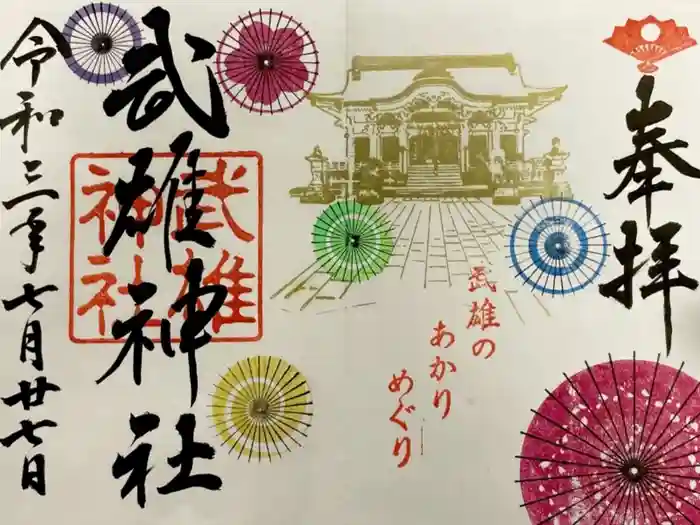 奉拝
武雄の
あかり
めぐり
武雄神社
武雄
神社
令和三年七月廿七日